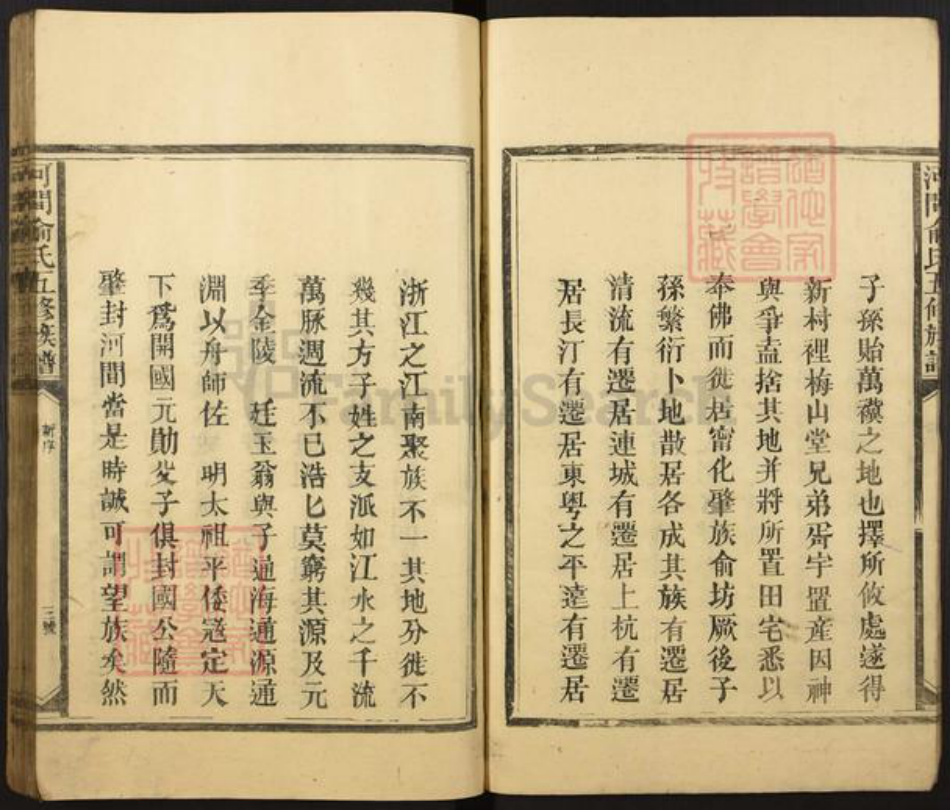 河間俞氏五修族譜
子孫貽萬禩之地也擇所攸處遂得
新村裡梅山堂兄弟胥宇置産因神
與爭盍捨其地并將所置田宅悉以
奉佛而徙居甯化肇族俞坊厥後子
孫繁衍卜地散居各成其族有遷居
清流有遷居連城有遷居上杭有遷
居長汀有遷居東粵之平遠有遷居
浙江之江南聚族不一其地分徙不
幾其方子姓之支派如江水之千流
萬脉週流不已浩匕莫窮其源及元
季金陵 廷玉翁與子通海通源通
淵以舟師佐 明太祖平倭寇定天
下爲開國元勛父子俱封國公隨而
肇封河間當是時誠可謂望族矣然
河間俞氏五修族譜
新序
三號
FamilySearch